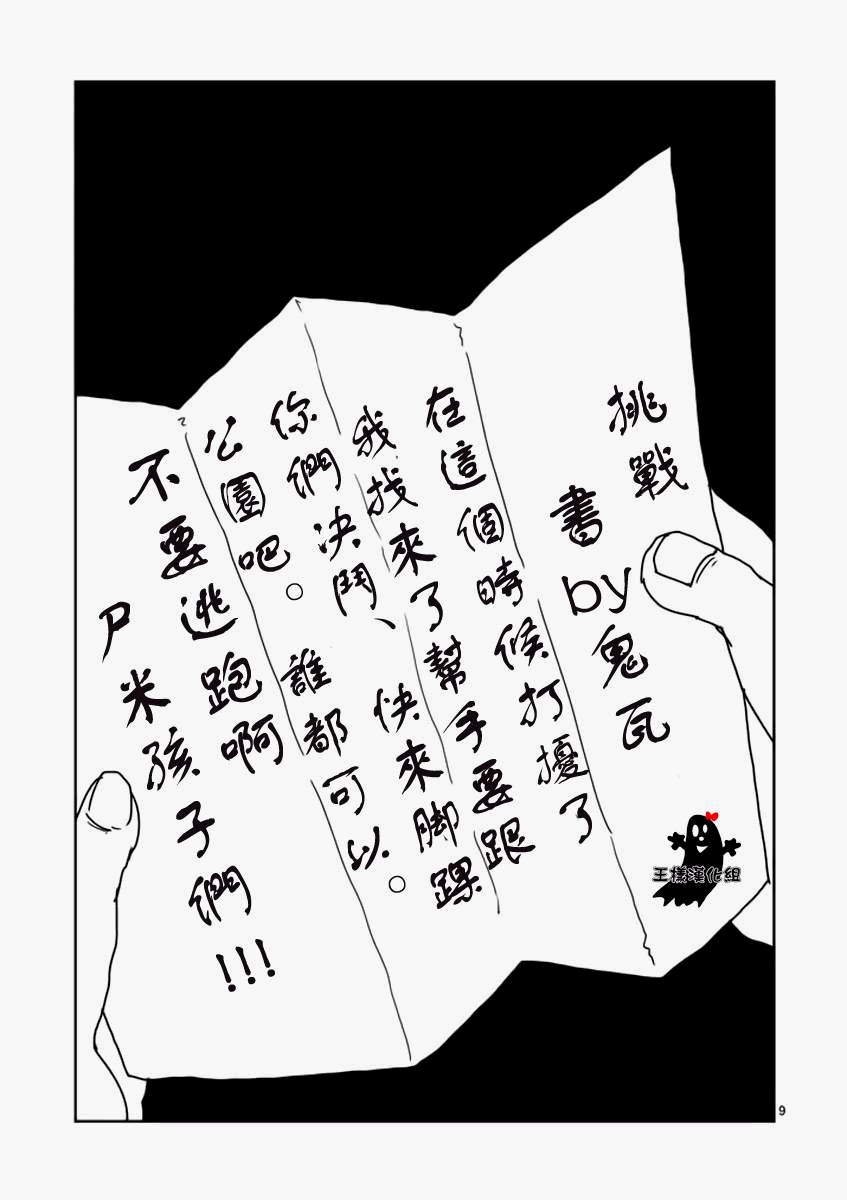 挑戰
書by鬼瓦
在這個時候打擾了
我找來了幫手要跟
你們決鬥、快來脚踝
公園吧。誰都可以。
不要逃跑啊
尸米孩子們!!!
王樣漢化組
9